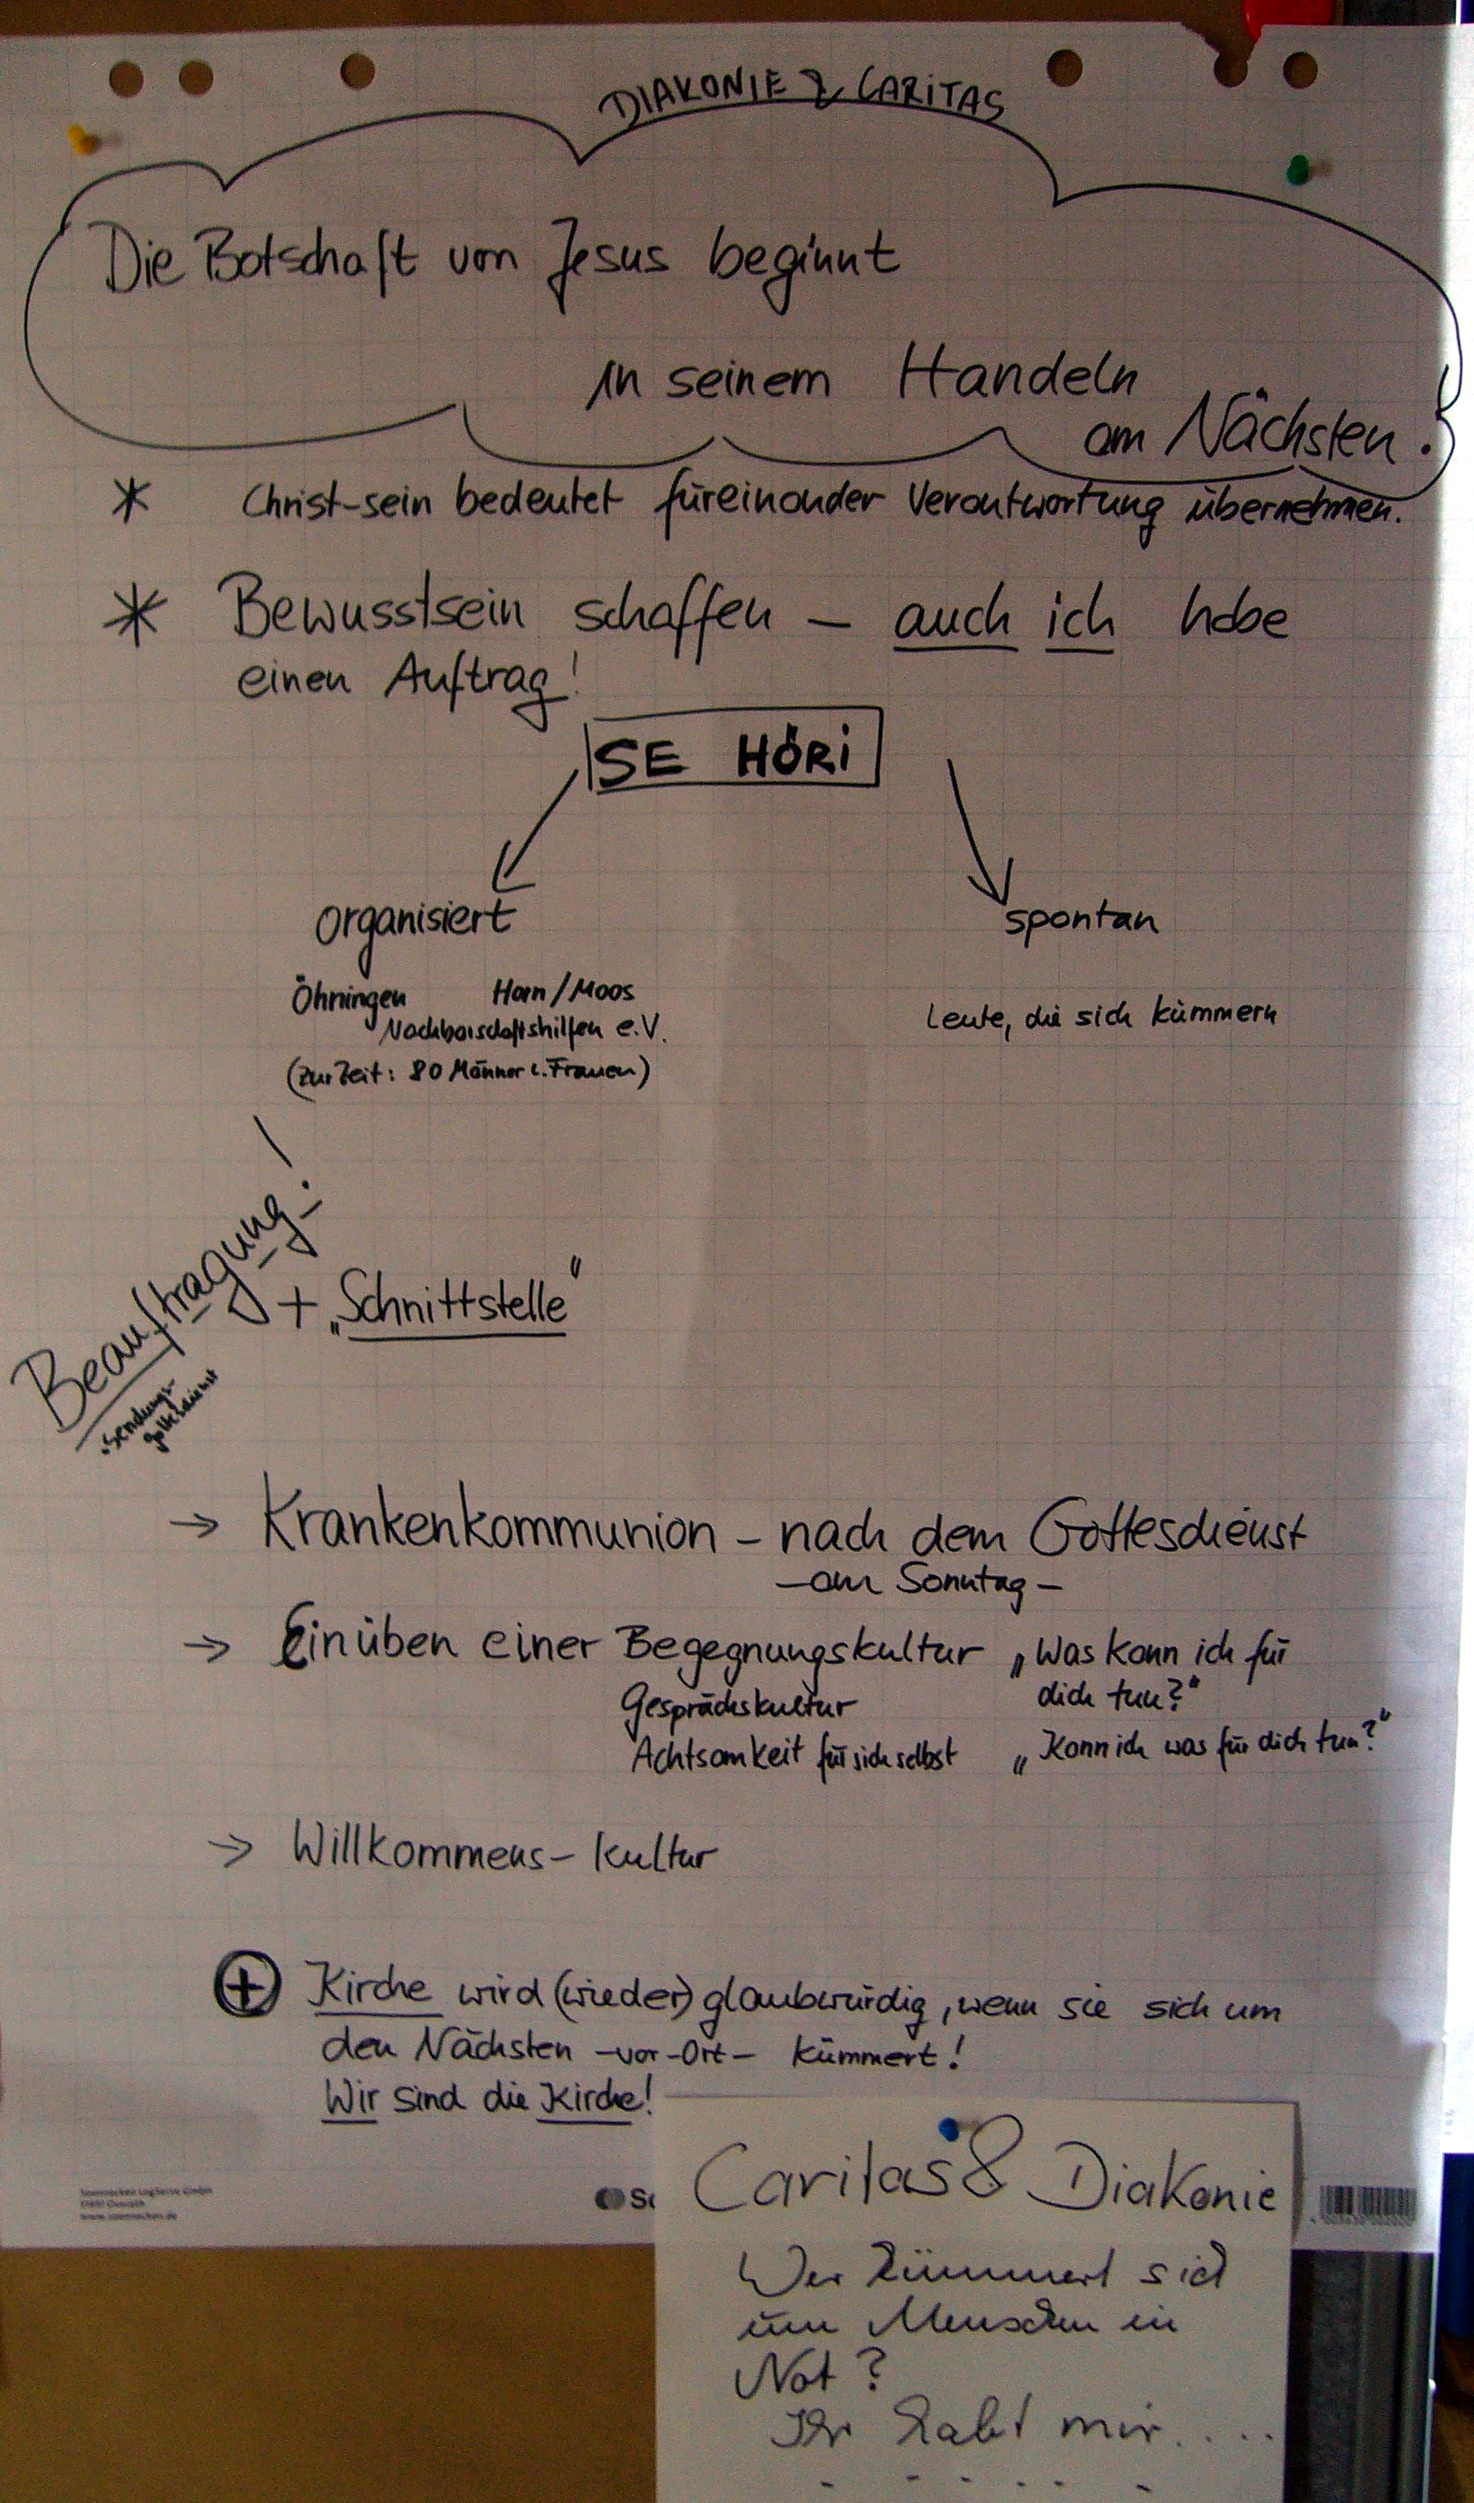 DIAKONIE & CARITAS
Die Botschaft von Jesus beginnt
in seinem Handeln
am Nächsten.
* Christ-sein bedeutet füreinander Verantwortung übernehmen.
* Bewusstsein schaffen – auch ich habe
einen Auftrag!
SE HÖRI
organisiert
spontan
Öhningen Horn/Moos
Nachbarschaftshilfen e.V.
(zur Zeit: 80 Männer u. Frauen)
Leute, die sich kümmern
Beauftragung!
Sendungs-
gottesdienst
+ „Schnittstelle“
→ Krankenkommunion – nach dem Gottesdienst
– am Sonntag –
→ Einüben einer Begegnungskultur „Was kann ich für
Gesprächskultur dich tun?“
Achtsamkeit für sich selbst „Kann ich was für dich tun?“
→ Willkommens-kultur
⊕ Kirche wird (wieder) glaubwürdig, wenn sie sich um
den Nächsten –vor-Ort– kümmert!
Wir sind die Kirche!
Soennecken LogServe GmbH
51491 Overath
www.soennecken.de
Caritas & Diakonie
Wer kümmert sich
um Menschen in
Not?
Ihr habt mir....